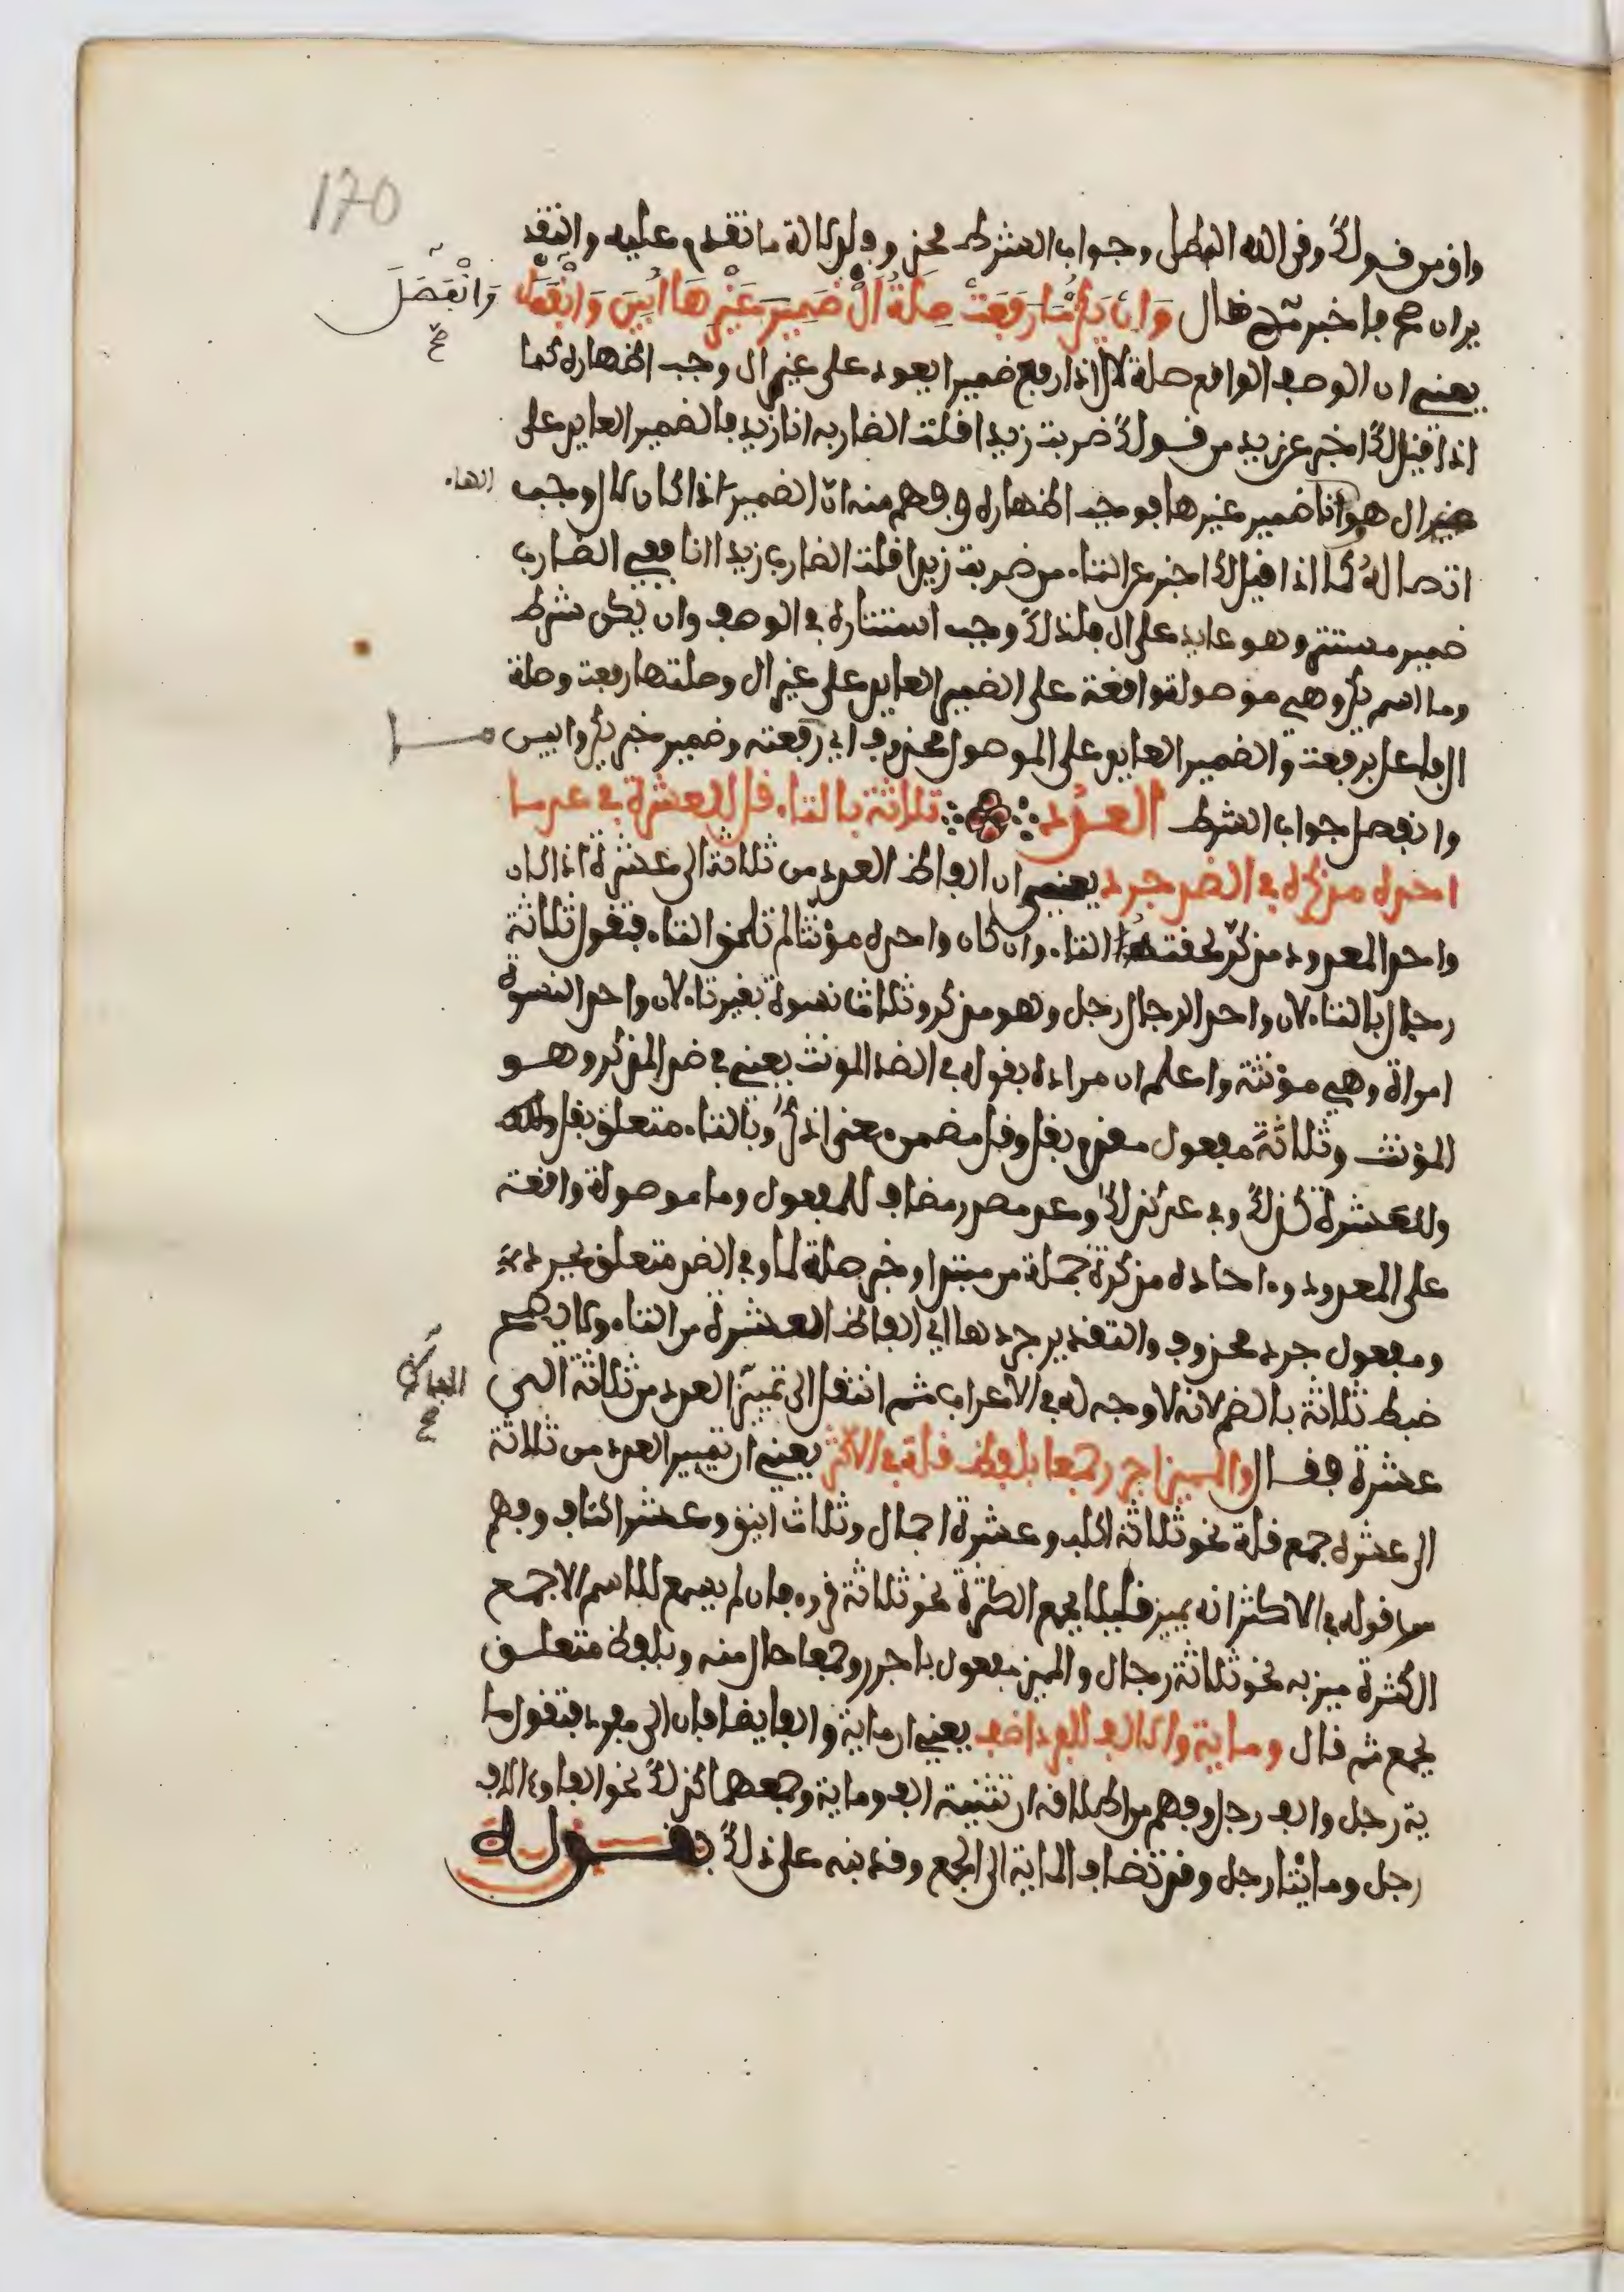 170
واق من قولك وقى الله البطل وجواب الشرط محذوف لدلالة ما تقدم عليه والتقد
ير ان صح فاخبر ثم قال وان يكن ما رفعت صلة ال ضمير غيرها ابين وانفصل
وانفصل صح
يعني ان الوصف الواقع صلة لال اذا رفع ضميرا يعود على غير ال وجب اظهاره كما
اذا قيل لك اخبر عن زيد من قولك ضربت زيدا فلت الضاربه انا زيد فالضمير العايد على
غير ال هو انا ضمير غيرها فوجب اظهاره وفهم منه ان الضمير اذا كان لال وجب
الهاء
اتصاله كما اذا قيل لك اخبر عن التاء من ضربت زيدا قلت الضارب زيدا انا ففي الضارب
ضمير مستتر وهو عايد على ال فلذلك وجب استتاره في الوصف وان يكن شرط
وما اسم يكن وهي موصولة واقعة على الضمير العايد على غير ال وصلتها رفعت وصلة
ال فاعل برفعت والضمير العايد على الموصول محذوف اي رفعته وضمير خبر يكن وابين
وانفصل جواب الشرط العدد ثلاثة بالتاء قل للعشرة في عد ما
احاده مذكره في الضد جرد يعني ان الفاظ العدد من ثلاثة الى عشرة اذا كان
واحد المعدود مذكر لحقتها التاء وان كان واحده مؤنثا لم تلحق التاء فتقول ثلاثة
رجال بالتاء لان واحد الرجال رجل وهو مذكر وثلاث نسوة بغير تاء لان واحد النسوة
امراة وهي مؤنثة واعلم ان مراده بقوله في الضد المونث يعني في ضد المذكر وهو
المؤنث وثلاثة مفعول مقدم بقل وقل مضمن معنى اذكر وبالتاء متعلق بقل
وللعشرة كذلك وفي عد كذلك وعد مصدر مضاف للمفعول وما موصولة واقعة
على المعدود واحاده مذكرة جملة من مبتدا وخبر صلة لما وفي الضد متعلق بجرد
ومفعول جرد محذوف والتقدير جردها اي الفاظ العشرة من التاء ولا يصح
ضبط ثلاثة بالضم لانه لا وجه له في الاعراب ثم انتقل الى تمييز العدد من ثلاثة الى
صح
عشرة فقال والمميز اجرر جمعا بلفظ قلة في الاكثر يعني ان تمييز العدد من ثلاثة
الى عشرة جمع قلة نحو ثلاثة اكلب وعشرة اجمال وثلاث اينق وعشر اكتاف وفهم
من قوله في الاكثر انه يميز قليلا بجمع الكثرة نحو ثلاثة قروء فان لم يسمع للاسم الا جمع
الكثرة ميز به نحو ثلاثة رجال والمميز مفعول باجرر وجمعا حال منه وبلفظ متعلق
بجمع ثم قال وماية والالف للفرد اضف يعني ان ماية والفا يضافان الى مفرد فتقول ما
ية رجل والف رجل وفهم من اطلاقه ان تثنية الف وماية وجمعهما كذلك نحو الفا وءالاف
رجل ومايتا رجل وقد تضاف الماية الى الجمع وقد نبه على ذلك بقوله